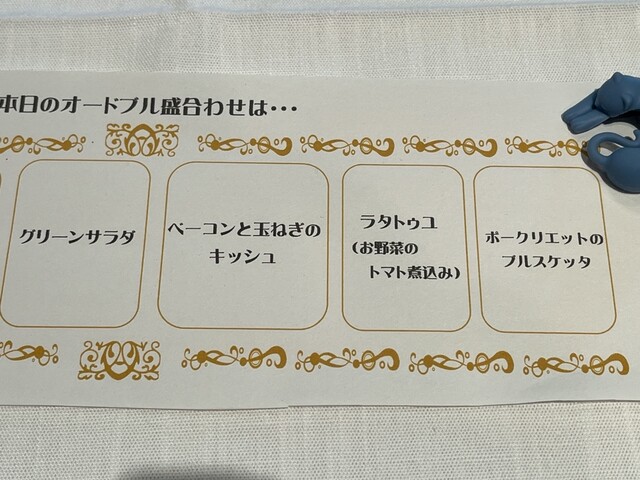 本日のオードブル盛合わせは・・・
グリーンサラダ
ベーコンと玉ねぎの
キッシュ
ラタトゥユ
(お野菜の
トマト煮込み)
ポークリエットの
ブルスケッタ